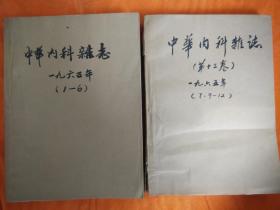 中华内科雜志
一九六五年
(1-6)
中華内科雜誌
(第十三卷)
一九六五年
(7.9-12)